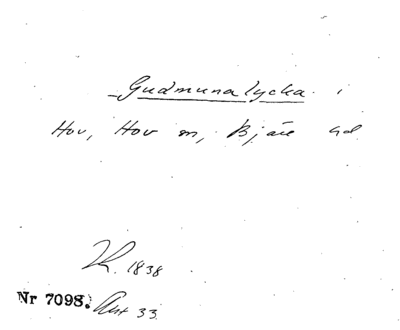 Gudmunalycka i
Hov, Hov sn, Bjäre hd
LR. 1838
Nr 7098. Akt 33